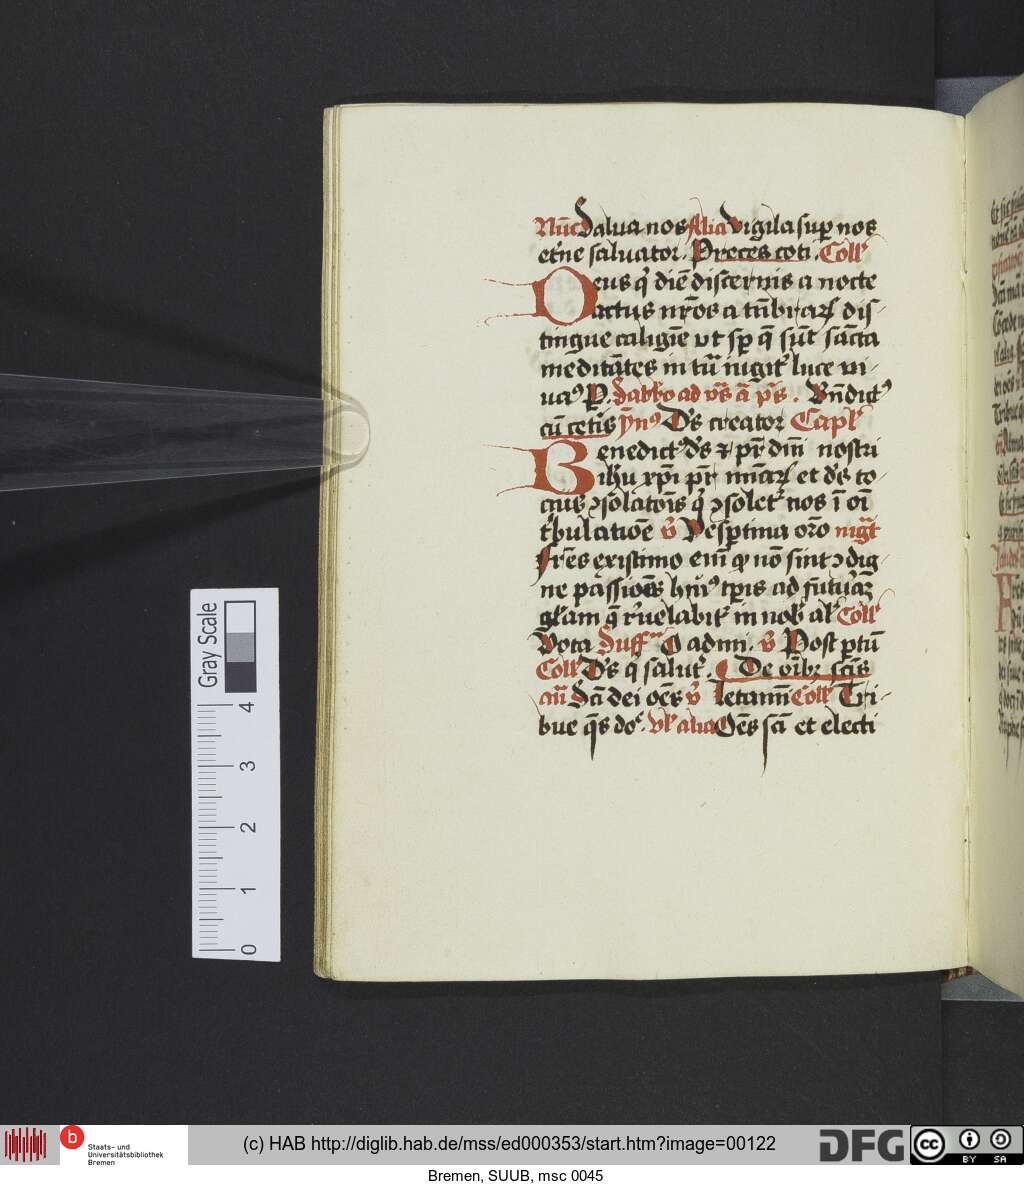 Nūc Salua nos Alia Vigila sup nos
et'ne saluator . Preces coti . Coll'
Deus q' diē discernis a nocte
actus nr̄os a tn̄brarꝝ dis
tingue caligīe vt sp̄ q̄ sūt sācta
meditātes in tū iugit' luce vi
uaꝰ P. Sabbo ad vs̄ a p̄s . Bn̄dictꝰ
cū cetis ȳnꝰ Ds̄ creator Capl'
Benedictꝰ ds̄ et pr̄ dm̄i nostri
ihū xp̄i pr̄ mīarꝝ et ds̄ to
cius ꝯsolatōis q' ꝯsolet' nos ī oī
t'bulatiōe v̄ Vesp̄tina or̄o nigt̄
Fr̄es existimo enī qꝫ nō sint ꝯdig
ne passiōes hui' tp̄is ad futurā
gl'am q̄ r'uelabit' in nob' al' Coll'
Vota Suff O admi . v̄ Post p̄tū
Coll' Ds̄ q salut' . De oībꝫ scīs
an̄ Scī dei oēs v̄ Letamī Coll' Tri
bue q̄s do' . Vl' alia Oēs scī et electi
Gray Scale
4
3
2
1
0
b
Staats- und
Universitätsbibliothek
Bremen
(c) HAB http://diglib.hab.de/mss/ed000353/start.htm?image=00122
DFG
cc
BY SA
Bremen, SUUB, msc 0045